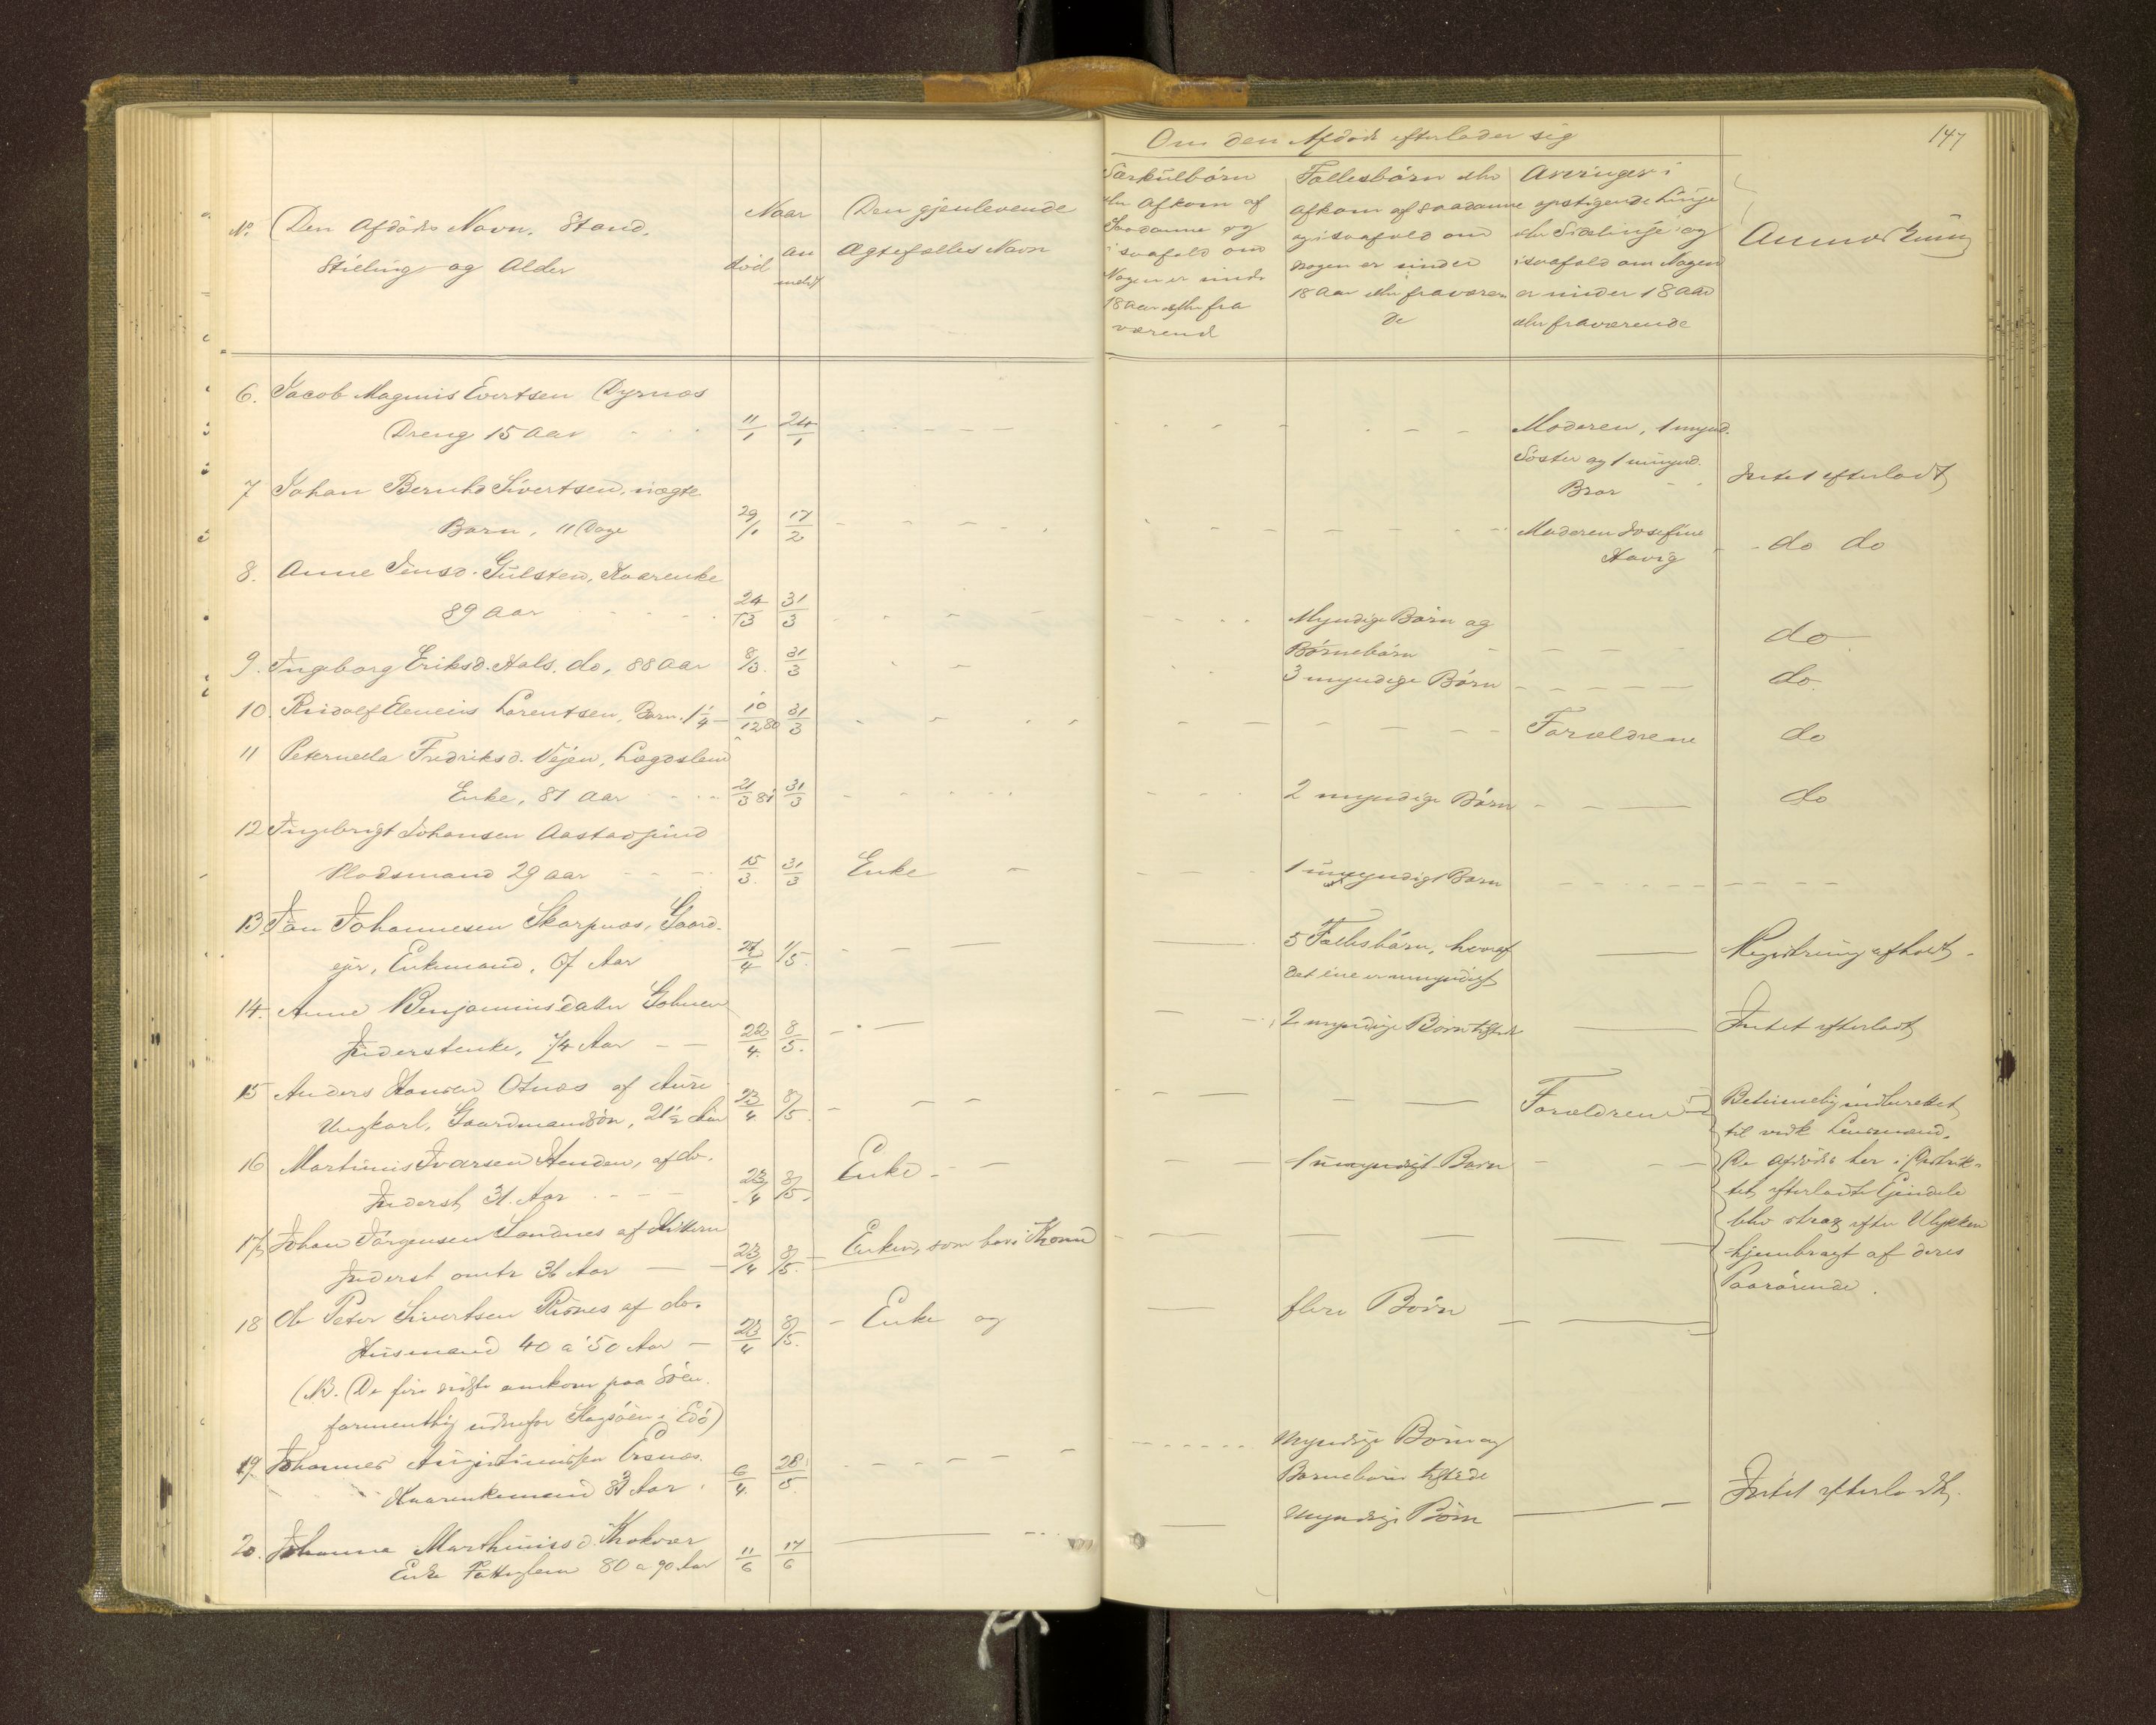 147
Om den Afdøde efterlader sig
No. Den Afdødes Navn, Stand,
Stilling og Alder
Naar
død
an
meldt
Den gjenlevende
Ægtefælles Navn
Særkulbørn
eller Afkom af
Saadanne og
i saafald om
Nogen er under
18 Aar eller fra
værende
Fællesbørn eller
Afkom af saadanne
og i saafald om
nogen er under
18 Aar eller fraværen
de
Arvinger i
opstigende Linje
eller Sidelinje og
i saafald om Nogen
er under 18 Aar
eller fraværende
Anmærkning
6. Jacob Magnus Evertsen Dyrnæs
Dreng 15 Aar 11/1 24/1 Moderen, 1 mynd.
Søster og 1 umynd.
Bror Intet efterladt
7 Johan Bernhd Sivertsen, uægte
Barn, 11 Dage 29/1 17/2 Moderen Josefine
Havig do do
8. Anne Jensd. Gulsten, Kaarenke
89 Aar 24/3 31/3 Myndige Børn og
Børnebørn do
9. Ingeborg Eriksd. Hals, do, 88 Aar 8/3 31/3 3 myndige Børn do
10. Rudolf Elenius Lorentsen, Barn 1 1/4 10/12 80 31/3 Forældrene do
11 Peternella Fredriksd. Vejen, Lægdslem
Enke, 81 Aar 21/3 81 31/3 2 myndige Børn do
12 Ingebrigt Johansen Aastadsund
Pladsmand 29 Aar 15/3 31/3 Enke 1 umyndigt Barn
13 Jon Johannesen Skarpnæs, Gaard-
ejer, Enkemand, 67 Aar 21/4 1/5 5 Fællesbørn, hvoraf
det ene er umyndigt Registrering afholdt.
14. Anne Benjaminsdatter
Inderstenke, 74 Aar 22/4 8/5 2 myndige Børn tilstede Intet efterladt
15 Anders Hansen Otnæs af Aure
Ungkarl, Gaardmandsøn, 21 1/2 Aar 23/4 8/5 Forældrene
16 Martinus Ivarsen Henden, af do.
Inderst 31 Aar 23/4 8/5 Enke 1 umyndigt Barn
17 Johan Jørgensen Sandnes af Hitteren
Inderst omtr 36 Aar 23/4 8/5 Enken, som bor i
18 Ole Peter Sivertsen af do.
Husmand 40 a 50 Aar 23/4 8/5 Enke og flere Børn
til vedk Lensmand.
De afdødes her i Distrik-
tet efterladte Ejendele
blev strax efter Ulykken
hjembragt af deres
Paarørende.
(NB. De fire sidste omkom paa Søen
formentlig udenfor i Edø)
19. Johannes
Kaarenkemand 83 Aar 6/4 28/5 Myndige Børn og
Børnebørn tilstede Intet efterladt.
20. Johanne Marthinusd.
Enke Fattiglem 80 a 90 Aar 11/6 17/6 Myndige Børn